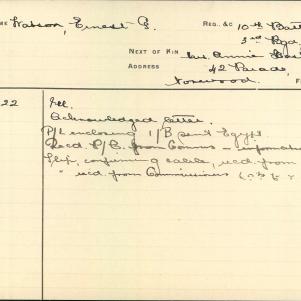 ME Watson, Ernest G.
REG., &C 10th Batt
3rd Rgd
NEXT OF KIN Mrs. Annie
ADDRESS 42 Parade,
Norwood.
22 Ell.
Acknowledged letter.
P/L enclosing 1/B sent Egypt.
Recd P/C. from Comms – information
Slip, confirming cable, recd. from
" recd. from Commissioners